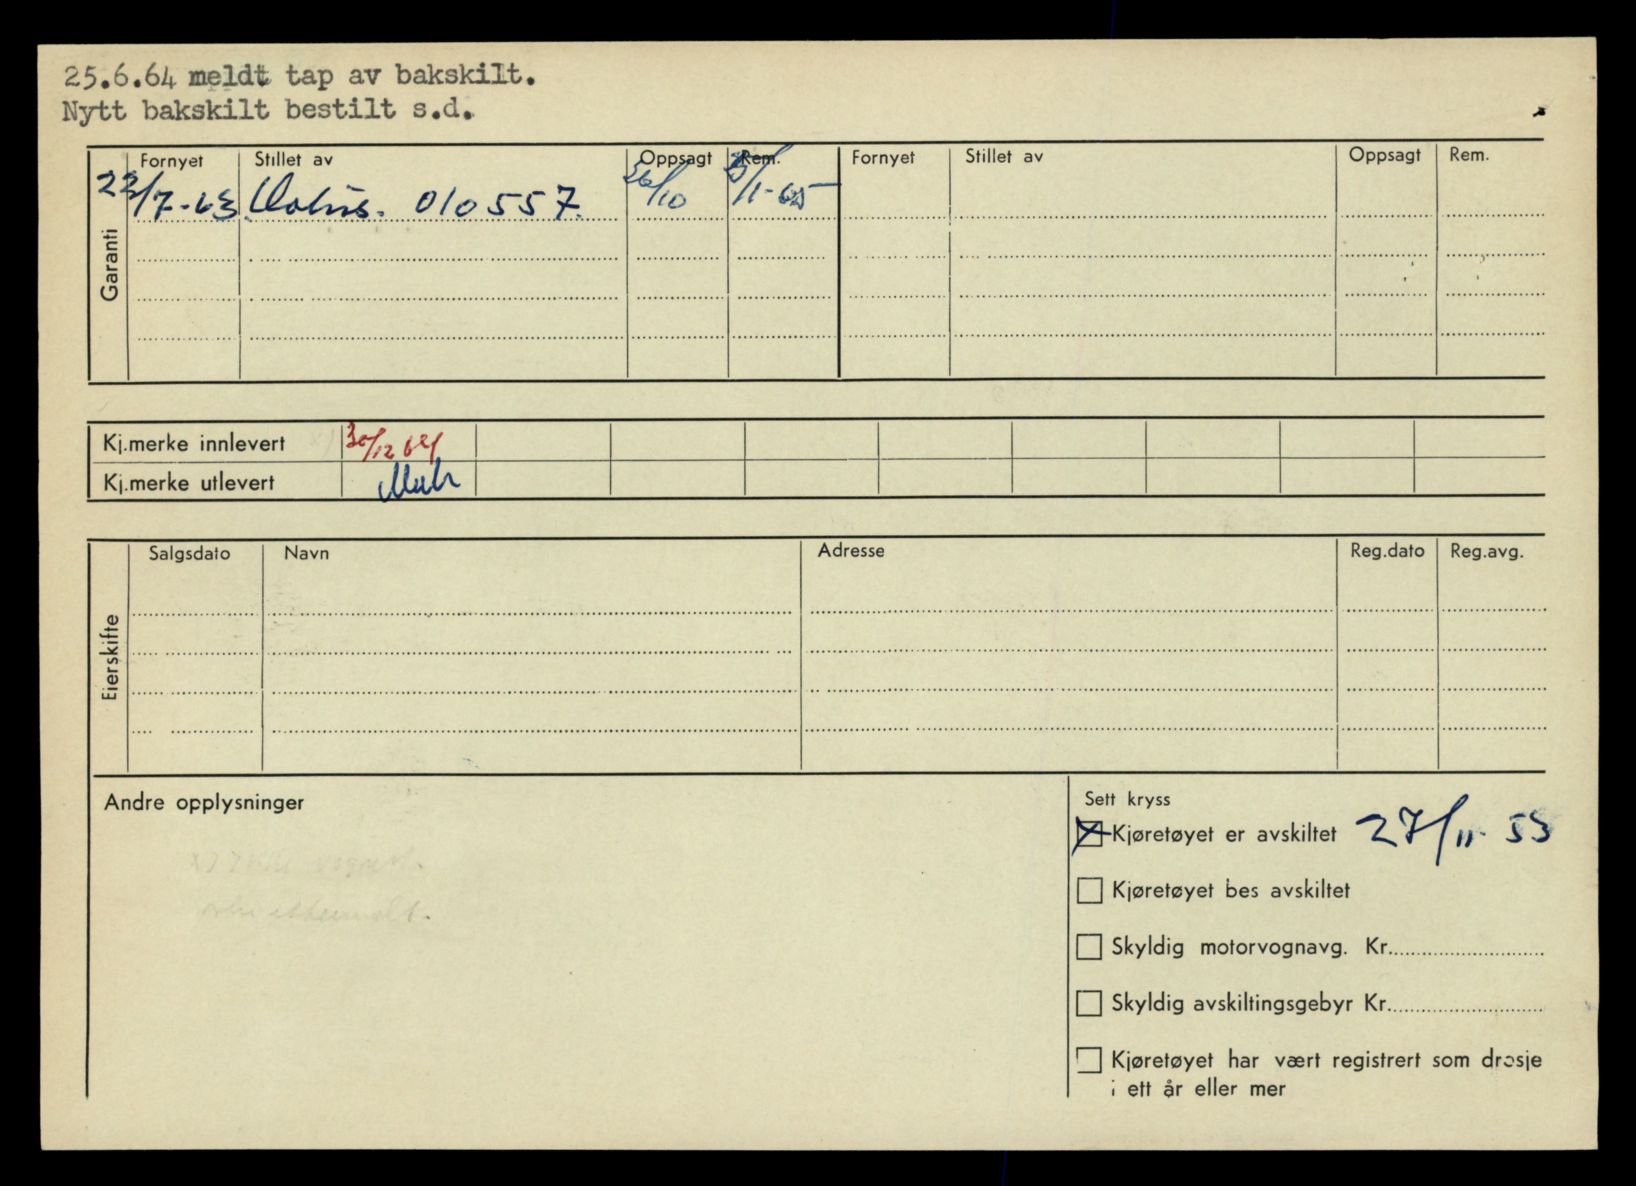 25.6.64 meldt tap av bakskilt.
Nytt bakskilt bestilt s.d.
Garanti
Fornyet Stillet av Oppsagt Rem. Fornyet Stillet av Oppsagt Rem.
22/7-63 010557. 30/10 5/1-65
Kj.merke innlevert 30/12 64
Kj.merke utlevert
Eierskifte
Salgsdato Navn Adresse Reg.dato Reg.avg.
Andre opplysninger
Sett kryss
Kjøretøyet er avskiltet 27/11-53
Kjøretøyet bes avskiltet
Skyldig motorvognavg. Kr.
Skyldig avskiltingsgebyr Kr.
Kjøretøyet har vært registrert som drosje
i ett år eller mer